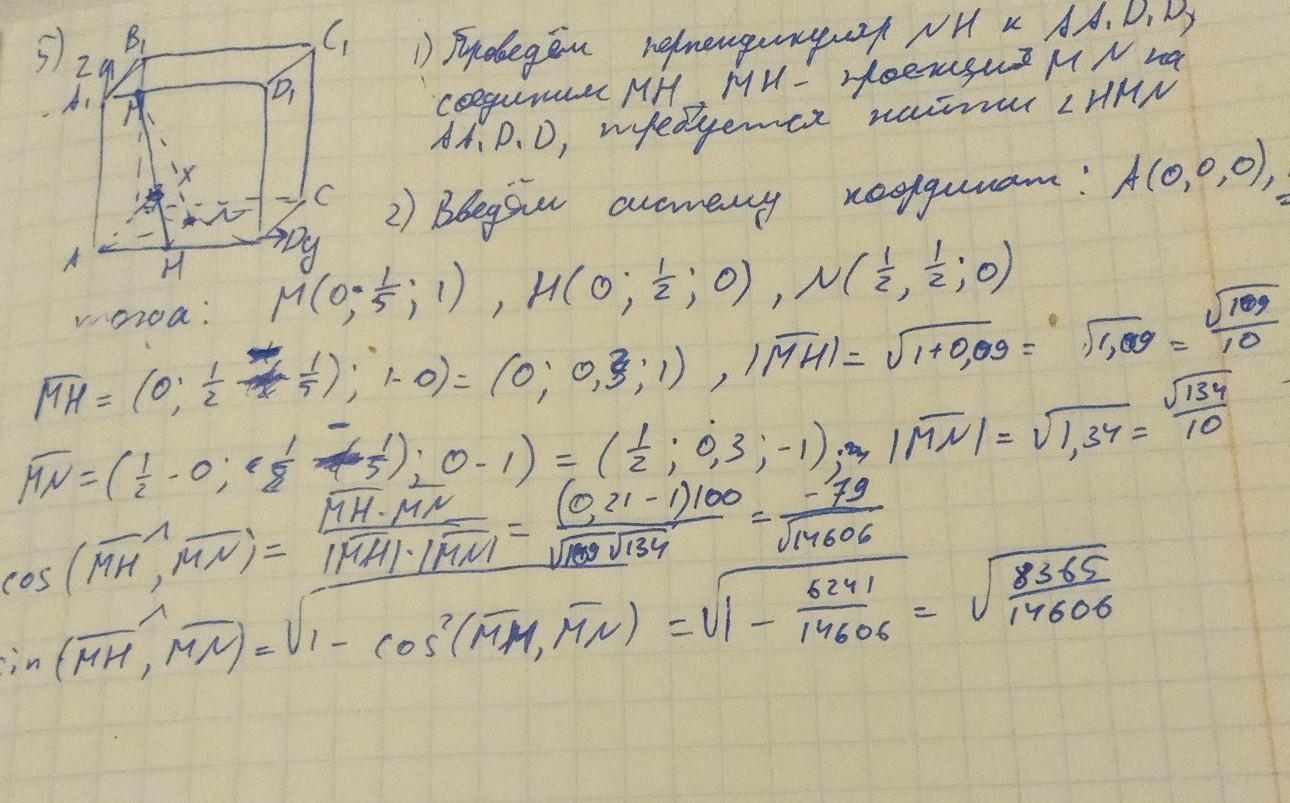 5)
B₁
C₁
z
A₁
M
D₁
x
C
N
A
H
D
y
1) Проведём перпендикуляр NH к AA₁D₁D,
соединим MH, MH - проекция MN на
AA₁D₁D, требуется найти ∠HMN
2) Введём систему координат: A(0,0,0),
тогда: M(0; 1/5; 1), H(0; 1/2; 0), N(1/2, 1/2; 0)
MH = (0; 1/2 - 1/5); 1-0) = (0; 0,3; 1), |MH| = √(1+0,09) = √1,09 = √109/10
MN = (1/2 - 0; 1/2 - 1/5); 0-1) = (1/2; 0,3; -1); |MN| = √1,34 = √134/10
cos(MH^, MN) = MH·MN/|MH|·|MN| = (0,21-1)100/√109√134 = -79/√14606
sin(MH^, MN) = √(1 - cos²(MH, MN)) = √(1 - 6241/14606) = √(8365/14606)